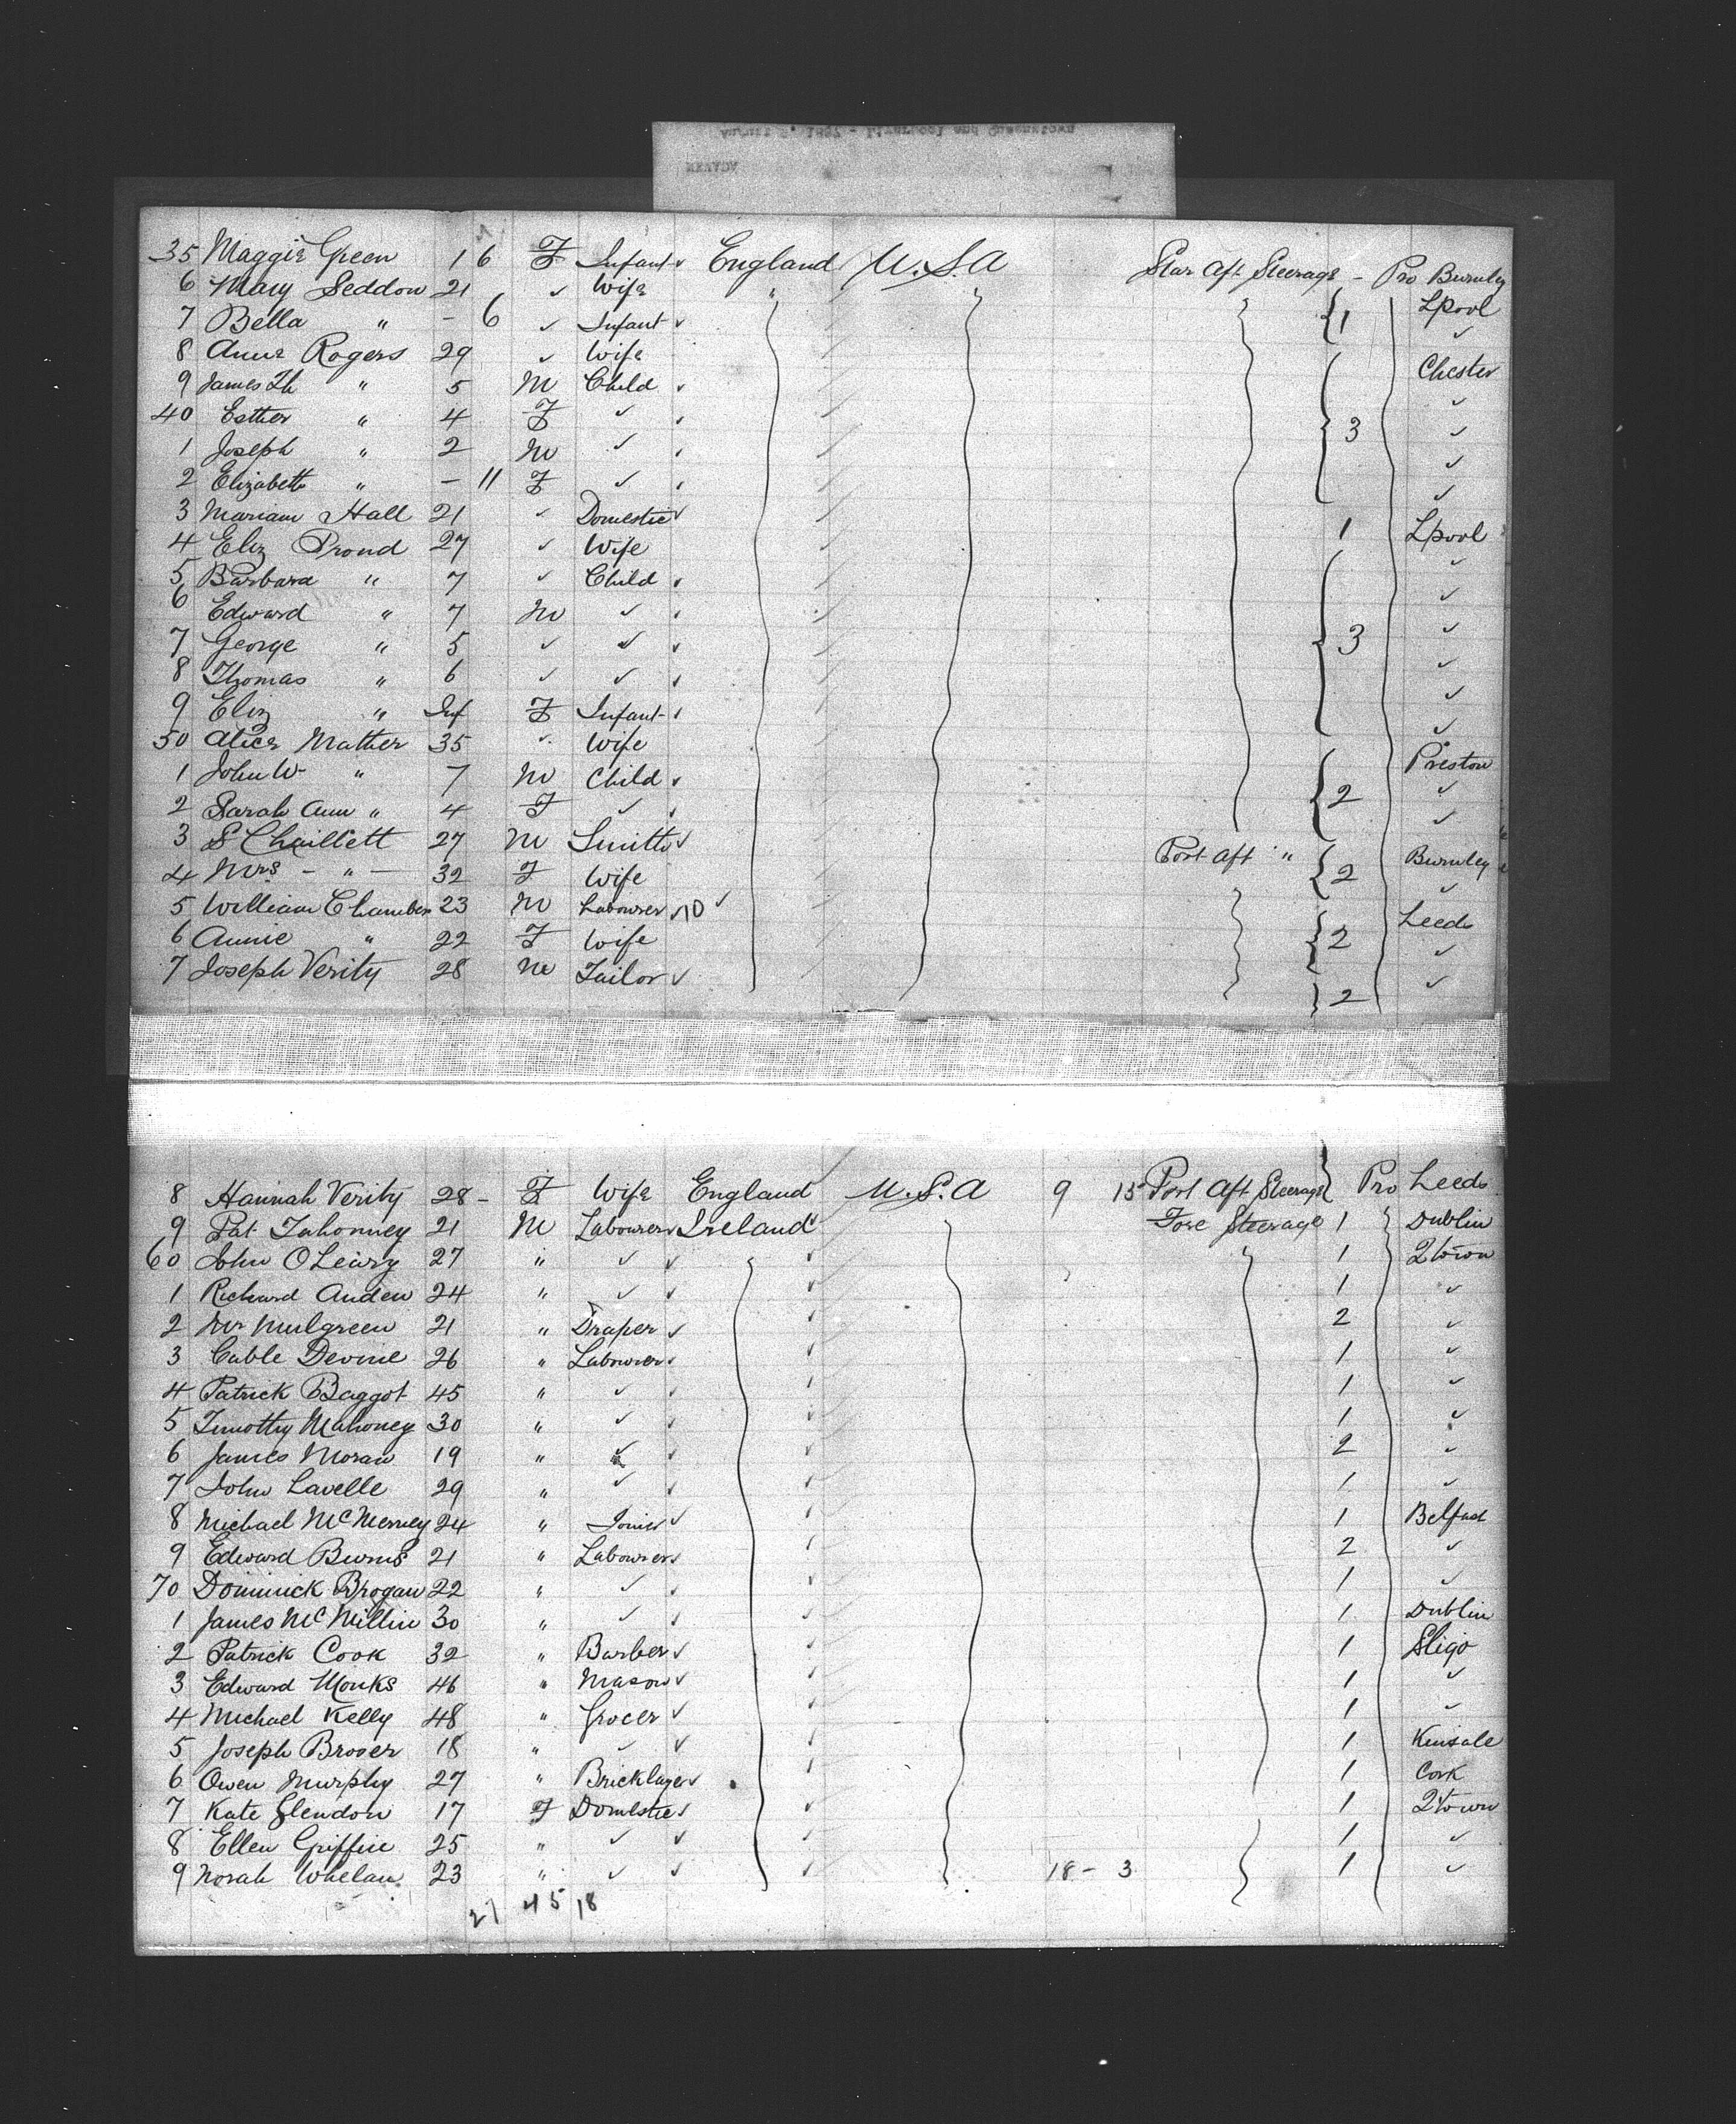 35 Maggie Green 1 6 F Infant ✓ England U.S.A Star Aft Steerage - Pro Burnley
6 Mary Seddon 21 ✓ Wife " Lpool
7 Bella " - 6 ✓ Infant ✓ 1 ✓
8 Anne Rogers 29 ✓ Wife Chester
9 James Th " 5 M Child ✓ ✓
40 Esther " 4 F ✓ ✓ 3 ✓
1 Joseph " 2 M ✓ ✓ ✓
2 Elizabeth " - 11 F ✓ ✓ ✓
3 Mariam Hall 21 ✓ Domestic ✓ 1 Lpool
4 Eliz Proud 27 ✓ Wife ✓
5 Barbara " 7 ✓ Child ✓ ✓
6 Edward " 7 M ✓ ✓ ✓
7 George " 5 ✓ ✓ ✓ 3 ✓
8 Thomas " 6 ✓ ✓ ✓ ✓
9 Eliz " Inf F Infant ✓ ✓
50 Alice Mather 35 ✓ Wife Preston
1 John W " 7 M Child ✓ ✓
2 Sarah Ann " 4 F ✓ ✓ 2 ✓
3 S Chaillett 27 M Smith ✓ Port Aft " Burnley
4 Mrs - " - 32 F Wife 2 ✓
5 William Chambers 23 M Labourer ✓ 10 ✓ Leeds
6 Annie " 22 F Wife 2 ✓
7 Joseph Verity 28 M Tailor ✓ 2 ✓
8 Hannah Verity 28 - F Wife England U.S.A 9 15 Port Aft Steerage Pro Leeds
9 Pat Tahonney 21 M Labourer ✓ Ireland ✓ Fore Steerage 1 Dublin
60 John O'Leary 27 " ✓ ✓ ✓ 1 Qtown
1 Richard Auden 24 " ✓ ✓ ✓ 1 ✓
2 Mulgreen 21 " Draper ✓ ✓ 2 ✓
3 Cable Devine 26 " Labourer ✓ ✓ 1 ✓
4 Patrick Baggot 45 " ✓ ✓ ✓ 1 ✓
5 Timothy Mahoney 30 " ✓ ✓ ✓ 1 ✓
6 James Moran 19 " ✓ ✓ ✓ 2 ✓
7 John Lavelle 29 " ✓ ✓ ✓ 1 ✓
8 Michael McMerney 24 " Joiner ✓ ✓ 1 Belfast
9 Edward Burns 21 " Labourer ✓ ✓ 2 ✓
70 Dominick Brogan 22 " ✓ ✓ ✓ 1 ✓
1 James McMillin 30 " ✓ ✓ ✓ 1 Dublin
2 Patrick Cook 32 " Barber ✓ ✓ 1 Sligo
3 Edward Monks 46 " Mason ✓ ✓ 1 ✓
4 Michael Kelly 48 " Grocer ✓ ✓ 1 ✓
5 Joseph Broser 18 " ✓ ✓ ✓ 1 Kinsale
6 Owen Murphy 27 " Bricklayer ✓ ✓ 1 Cork
7 Kate Glendon 17 F Domestic ✓ ✓ 1 Qtown
8 Ellen Griffin 25 " ✓ ✓ ✓ 1 ✓
9 Norah Whelan 23 " ✓ ✓ ✓ 18 - 3 1 ✓
27 45 18